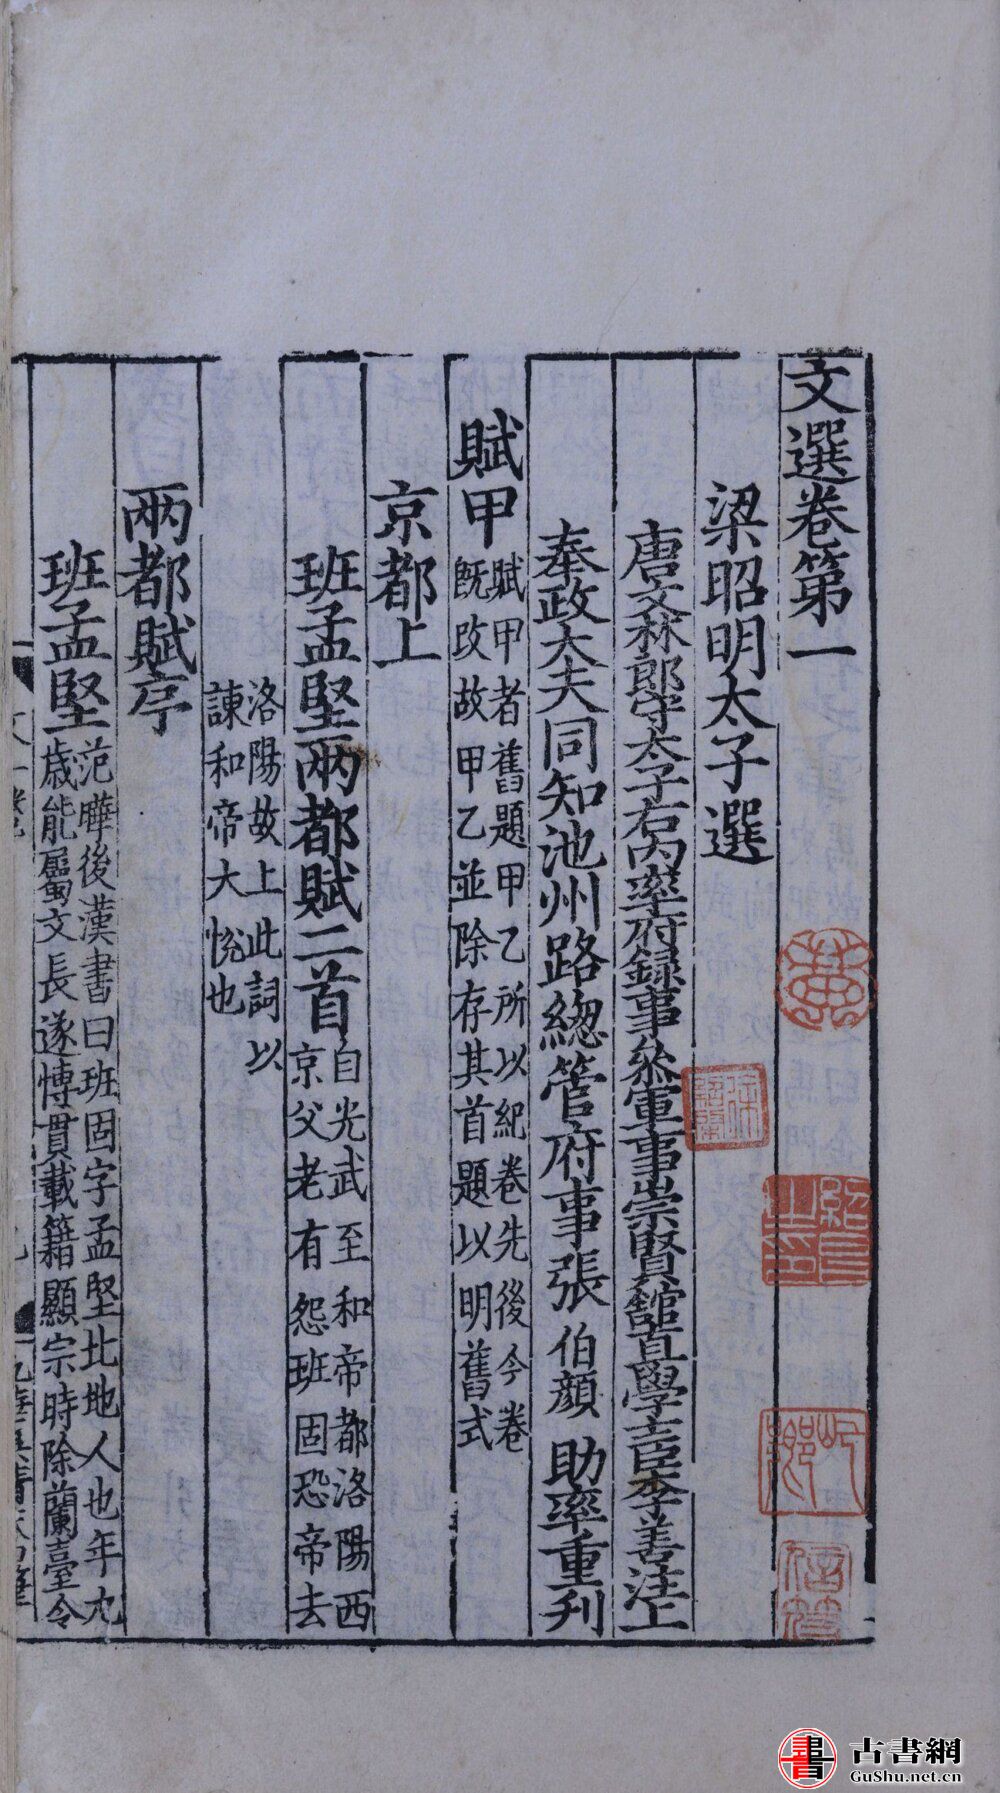 文選卷第一
梁昭明太子選
唐文林郎守太子右內率府録事叅軍事崇賢館直學士臣李善注上
奉政大夫同知池州路緫管府事張伯顔助率重刋
賦甲
賦甲者舊題甲乙所以紀卷先後今卷
旣改故甲乙並除存其首題以明舊式
京都上
班孟堅兩都賦二首
自光武至和帝都洛陽西
京父老有怨班固恐帝去
洛陽故上此詞以
諫和帝大悅也
兩都賦序
班孟堅
范曄後漢書曰班固字孟堅北地人也年九
歲能屬文長遂愽貫載籍顯宗時除蘭臺令
古書網
GuShu.net.cn